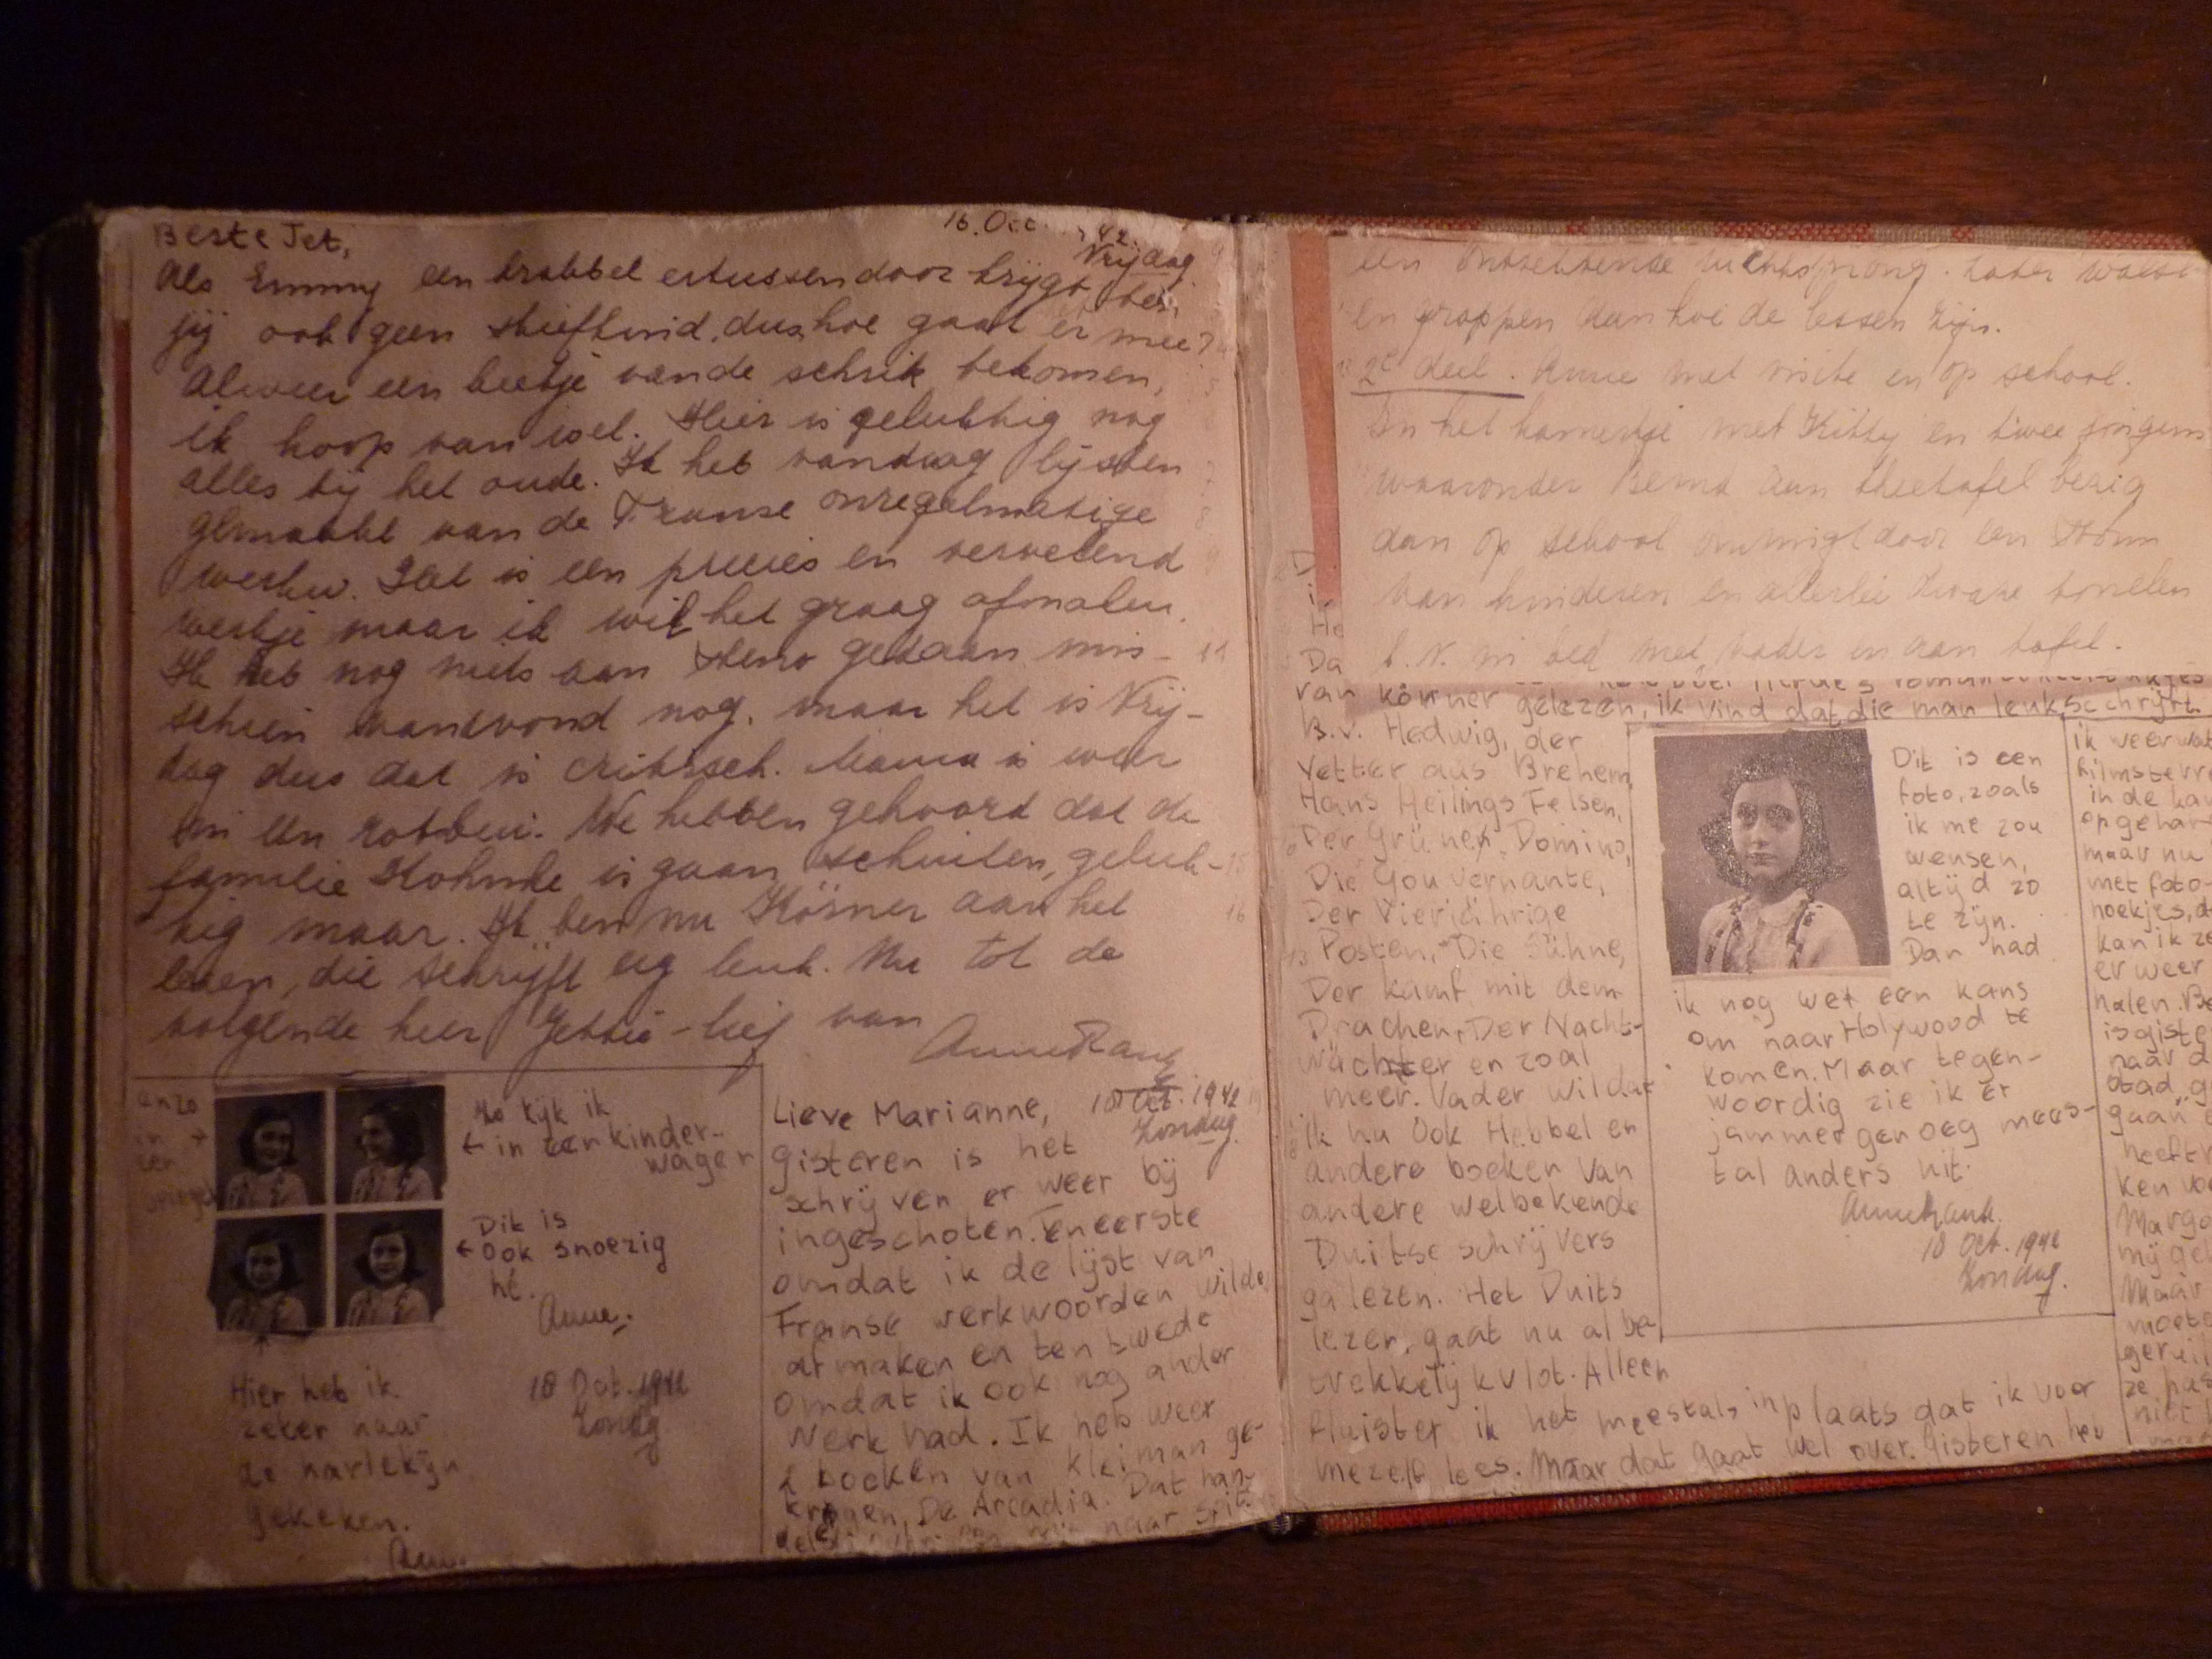 Beste Jet,
16. Oct. '42.
Vrijdag
Als Emmy een krabbel ertussendoor krijgt, ben
jij ook geen stiefkind, dus hoe gaat er mee?
Alweer een beetje van de schrik bekomen,
ik hoop van wel. Hier is gelukkig nog
alles bij het oude. Ik heb vandaag lijsten
gemaakt van de Franse onregelmatige
werkw. Het is een precies en vervelend
werkje maar ik wil het graag afmaken.
Ik heb nog niets aan steno gedaan mis-
schien vanavond nog, maar het is Vrij-
dag dus dat is critisch. Mama is weer
in een rotbui. We hebben gehoord dat de
familie is gaan schuilen, geluk-
kig maar. Ik ben nu Körner aan het
lezen, die schrijft erg leuk. Nu tot de
volgende keer Jettie-lief van
Anne Frank
en zo
in →
een
spiegel
Zo kijk ik
← in een kinder-
wagen
Dit is
← Ook snoezig
hè.
Anne.
Hier heb ik
zeker naar
de harlekijn
gekeken.
Anne.
18 Oct. 1942
Zondag
Lieve Marianne,
18 Oct. 1942
Zondag.
Gisteren is het
schrijven er weer bij
ingeschoten. en eerste
omdat ik de lijst van
Franse werkwoorden wilde
afmaken en ten twede
omdat ik ook nog ander
Werk had. Ik heb weer
2 boeken van Kleiman ge-
kregen, De Arcadia. Dat han-
naar Spit
een ontzettende luchtsprong. Later
en grappen dan hoe de lessen zijn.
2e deel. Anne met visite en op school.
In het kamertje met Kitty en twee jongens
waaronder Bernd aan theetafel bezig
dan op school omringd door een
van kinderen en allerlei dwaze
b.v. in bed met vader en aan tafel.
D
i
He
Da
van Körner gelezen, ik vind dat die man leuk schrijft.
B.v. Hedwig, der
Vetter aus Brehem,
Hans Heilings Felsen,
Der Grüner Domino,
Die Gouvernante,
Der Vierjährige
Posten, Die Sühne,
Der kamf mit dem
Drachen, Der Nacht-
wächter en zoal
meer. Vader wil dat
ik nu Ook Hebbel en
andere boeken van
andere welbekende
Duitse schrijvers
ga lezen. Het Duits
lezen, gaat nu al be-
trekkelijk vlot. Alleen
fluister ik het meestal, inplaats dat ik voor
mezelf lees. Maar dat gaat wel over. Gisteren heb
Dit is een
foto, zoals
ik me zou
wensen,
altijd zo
te zijn.
Dan had
ik nog wel een kans
om naar Holywood te
komen. Maar tegen-
woordig zie ik er
jammer genoeg mees-
tal anders uit.
Annefrank.
18 Oct. 1942
Zondag.
ik weer wat
filmsterre
in de ka
opgehan
maar nu
met foto-
hoekjes, d
kan ik ze
er weer
halen. Be
is giste
naar d
stad, g
gaan
heeft
ken vo
Margo
mij ge
Maar
moete
geruil
ze pas
niet